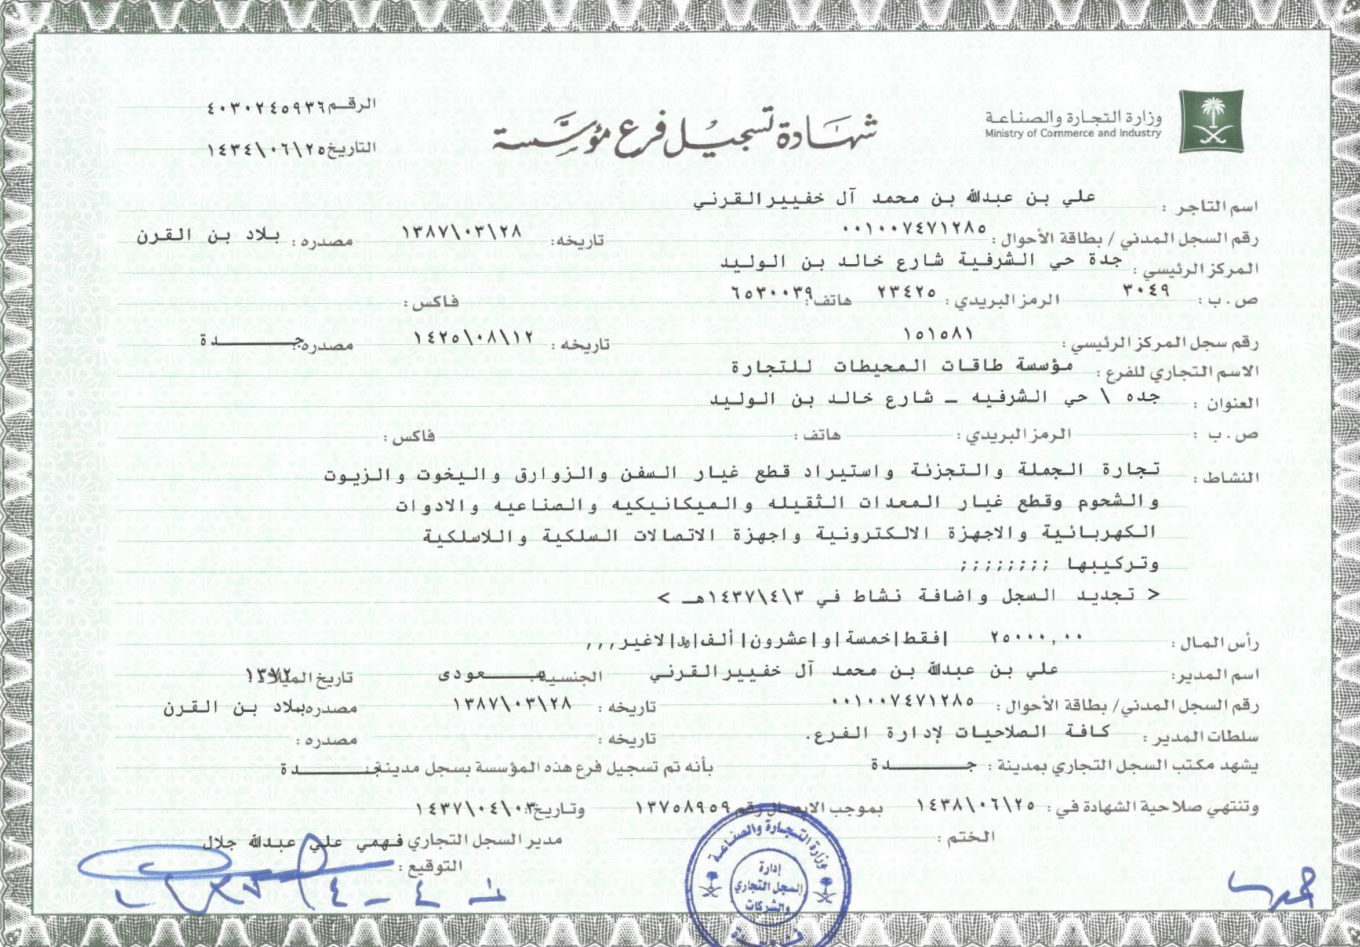 وزارة التجارة والصناعة
Ministry of Commerce and Industry
شهادة تسجيل فرع مؤسسة
الرقم ٤٠٣٠٢٤٥٩٣٦
التاريخ ١٤٣٤\٠٦\٢٥
اسم التاجر : علي بن عبدالله بن محمد آل خفيير القرني
رقم السجل المدني / بطاقة الأحوال : ٠٠١٠٠٧٤٧١٢٨٥ تاريخه : ١٣٨٧\٠٣\٢٨ مصدره : بلاد بن القرن
المركز الرئيسي : جدة حي الشرفية شارع خالد بن الوليد
ص . ب : ٣٠٤٩ الرمز البريدي : ٢٣٤٢٥ هاتف : ٦٥٣٠٠٣٩ فاكس :
رقم سجل المركز الرئيسي : ١٥١٥٨١ تاريخه : ١٤٢٥\٠٨\١٢ مصدره جــــــدة
الاسم التجاري للفرع : مؤسسة طاقات المحيطات للتجارة
العنوان : جده \ حي الشرفيه ـ شارع خالد بن الوليد
ص . ب : الرمز البريدي : هاتف : فاكس :
النشاط : تجارة الجملة والتجزئة واستيراد قطع غيار السفن والزوارق واليخوت والزيوت
والشحوم وقطع غيار المعدات الثقيله والميكانيكيه والصناعيه والادوات
الكهربائية والاجهزة الالكترونية واجهزة الاتصالات السلكية واللاسلكية
وتركيبها ;;;;;;;;
< تجديد السجل واضافة نشاط في ١٤٣٧\٤\٣هـ >
رأس المال : ٢٥٠٠٠,٠٠ |فقط|خمسة|و|عشرون|ألف|ريال|لاغير,,,
اسم المدير: علي بن عبدالله بن محمد آل خفيير القرني الجنسية ســـعودى تاريخ الميلاد
رقم السجل المدني/ بطاقة الأحوال : ٠٠١٠٠٧٤٧١٢٨٥ تاريخه : ١٣٨٧\٠٣\٢٨ مصدره بلاد بن القرن
سلطات المدير : كافة الصلاحيات لإدارة الفرع. تاريخه : مصدره :
يشهد مكتب السجل التجاري بمدينة : جــــــدة بأنه تم تسجيل فرع هذه المؤسسة بسجل مدينة جــــــدة
وتنتهي صلاحية الشهادة في : ١٤٣٨\٠٦\٢٥ بموجب الايصال رقم ١٣٧٥٨٩٥٩ وتاريخ ١٤٣٧\٠٤\٠٣
الختم : مدير السجل التجاري فهمي علي عبدالله جلال
التوقيع :
وزارة التجارة والصناعة
إدارة
السجل التجاري
والشركات